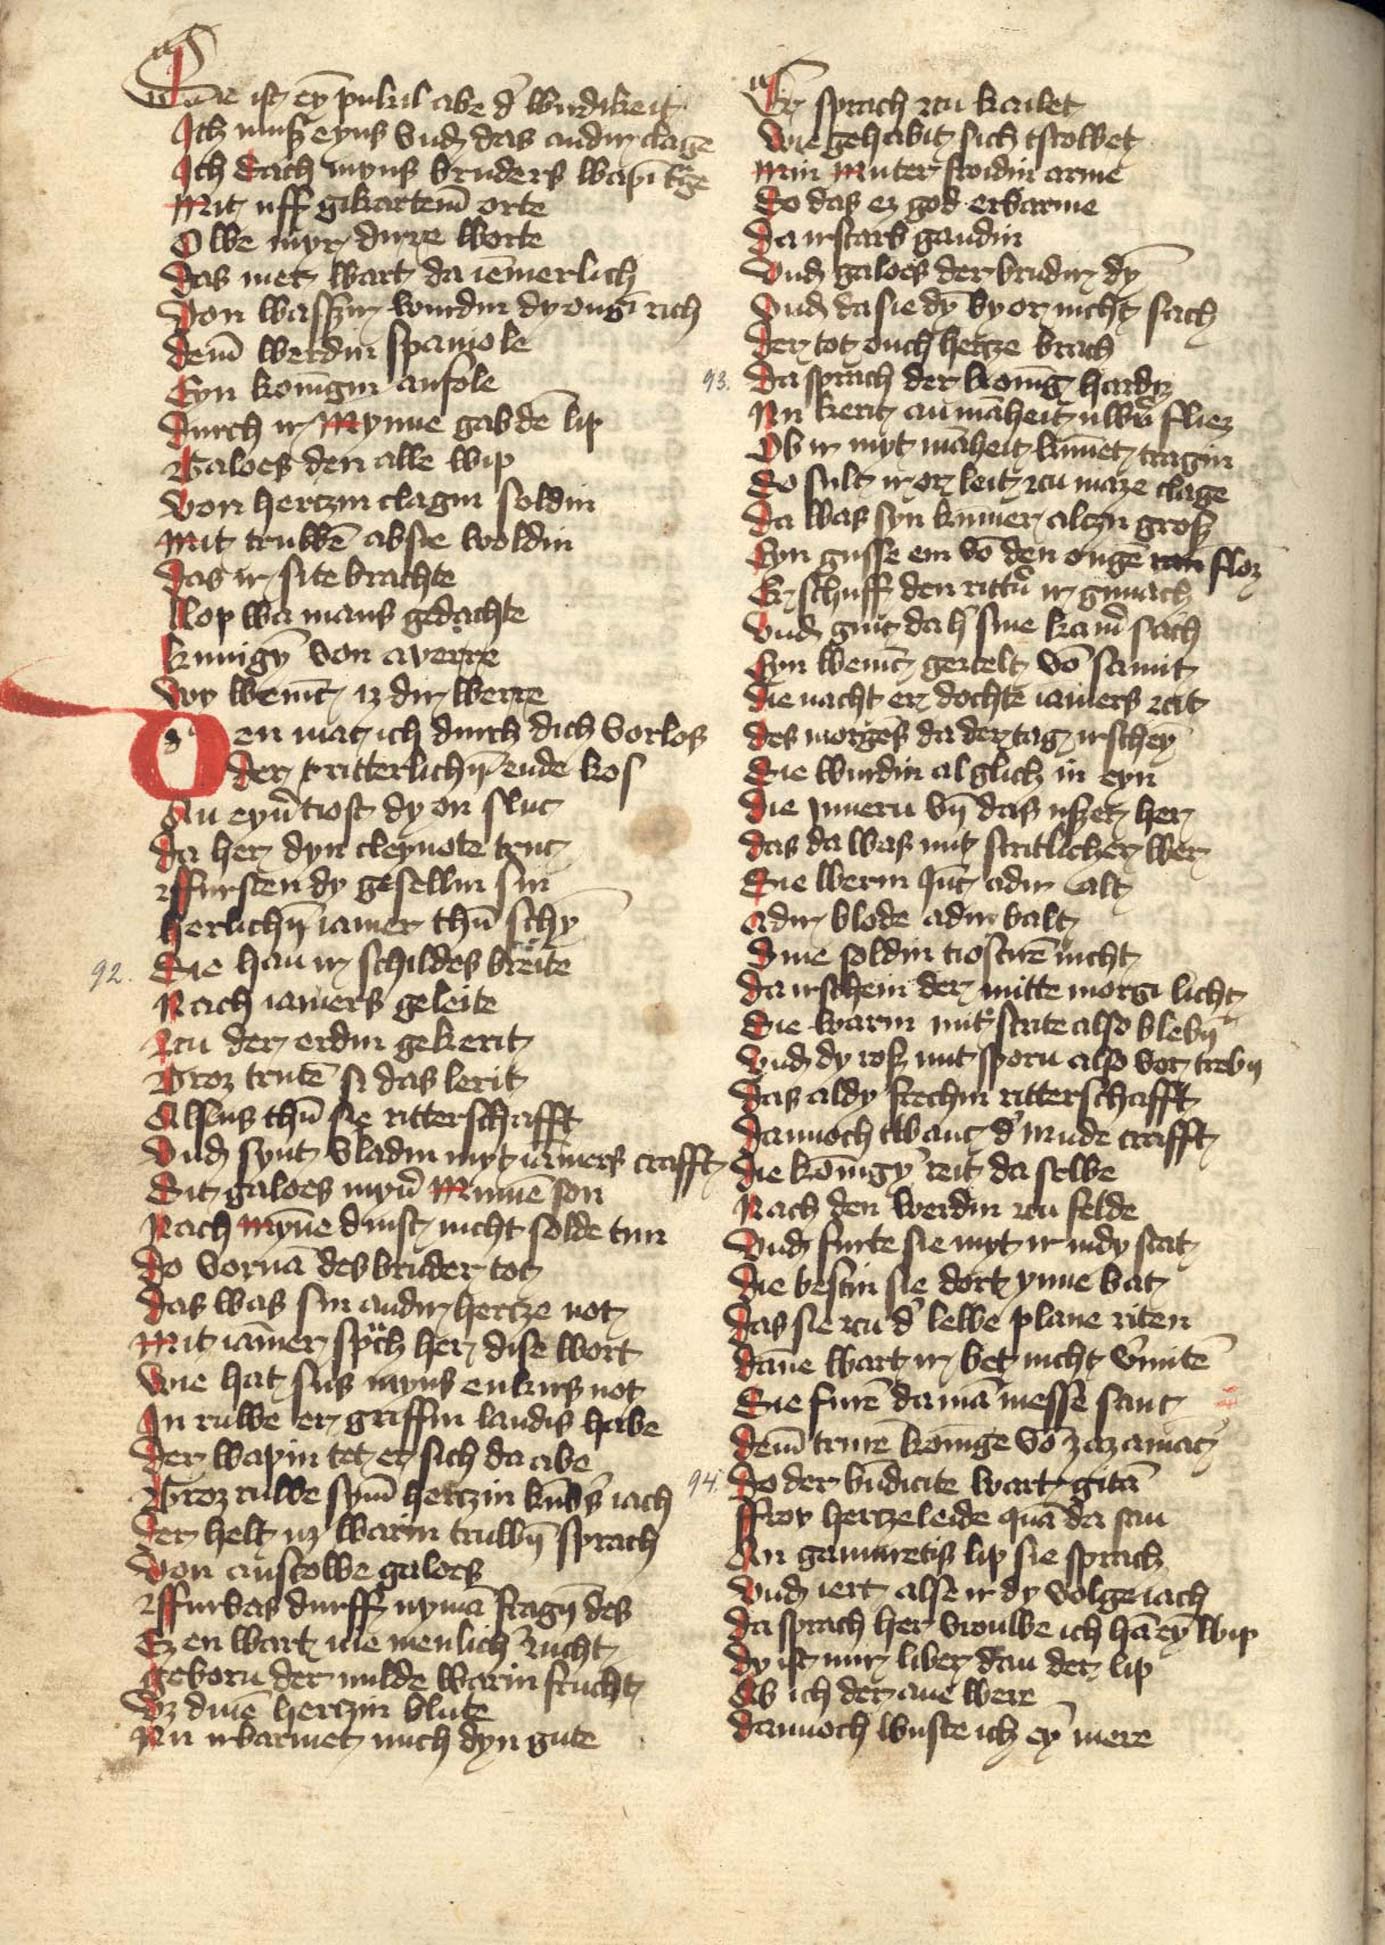 Süe ist eȳ pukil abe d' wirdikeit
Ich mus eyns vnd das andir clage
Ich sach myns bruders wapī trage
Mit uff gikartem̄ orte
O we myr dirre worte
Das met wart da iem̄erlich
Von wassir wurdin dy ougī rich
Dem̄ werdin spaniole
Eyn konīgin anfole
Durch ir Mynne gab dē lip
Galoes den alle wip
Von hertzin clagin soldin
Mit truwē ab sie woldin
Das ir site brachte
Lop wa mans gedachte
Kunīgȳ von averre
Wy wenīt iz dir werre
Den mat ich durch dich vorlos
Der ritterlichī ende kos
An eyn' tiost dy on sluc
Da her dyn cleynote truc
ffursten dy gesellin sin
Herlichī iamer thun̄ schȳ
92.
Sie han ir schildes breite
Nach iamers geleite
Zcu der erdin gekerit
Groz trurē si das lerit
Alsus thun̄ sie ritterschafft
Vnd synt vladin myt iam̄ers crafft
Sit galoes myn' Mumē son
Nach Myn̄e dinst nicht solde tun
Do vornā des bruder tot
Das was sin andir hertze not
Mit iam̄er sprach her dise wort
Wie hat sus myns enkirs not
In ruwe er griffin landis habe
Der wapin tet er sich da abe
Groz ruwe sym̄ hertzin kūb's iach
Der helt uz warin truwī sprach
Von anscowe galoes
ffurbas durff nymā fragī des
Ez en wart nie menlich' zucht
Geborn der milde warin frucht
Uz dinē hertzin blute
Nu irbarmet mich dyn gute
Er sprach zcu kailet
Wie gehabit sich tscowet
Min Muter froidin arme
So das ez god erbarme
Da irstarb gandin
Vnd galoes der brudir dȳ
Vnd da sie dy by or nicht sach
Der tot ouch hertze brach
93.
Da sprach der konīg hardiz
Nu kerit an māheit uwern fliez
Ob ir myt māheit kunnet tragin
So sult ir or leit zcu maze clage
Da was syn kum̄er alczu gros
Eyn gusse em vō den ougē floz
Er schuff den ritt'n ir gmach
Vnd ginc da h' sine kam' sach
Eyn wenīc geczelt vō samit
Die nacht er dochte iamers zcit
Des morgēs da der tag irscheȳ
Sie wurdin al glich in eyn
Die Innern vn̄ das uszer her
Das da was mit stritlicher wer
Sie werin Junc adir alt
Adir blode adir balt
Dine soldin tiostirē nicht
Da irschein der mitte morgī licht
Sie warin mit strite also blebī
Vnd dy ros mit sporn also vor trebī
Das al dy frechin ritterschafft
Dannoch twanc d' mude crafft
Die konīgȳ reit da selbe
Nach den werdin zcu felde
Vnd furte sie myt ir in dy stat
Die bestin sie dort ynne bat
Das sie zcu d' lewe plane riten
Dan̄e wart ir bet nicht v'mitē
Sie furē da mā messe sanc
Dem̄ trurē konīge vō zazamac
94.
Do der bn̄dicite wart gitā
ffrov hertzeleide quā da san
An gamuretis lip sie sprach
Vnd iert alse ir dy volge iach
Da sprach her vrouwe ich hā eȳ wip
Dy ist mir liber dan der lip
Ab ich der ane were
Dannoch wuste ich eȳ mere